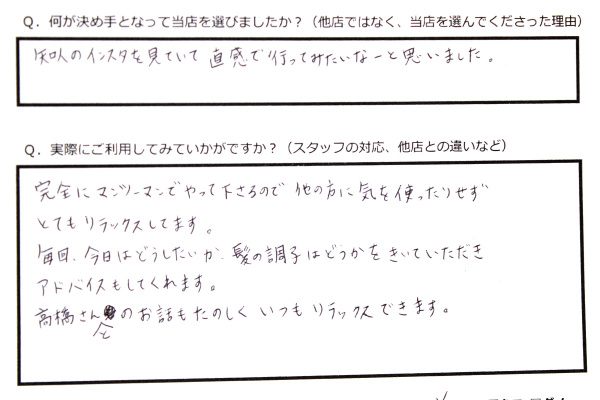 Q．何が決め手となって当店を選びましたか？（他店ではなく、当店を選んでくださった理由）
知人のインスタを見ていて 直感で行ってみたいなーと思いました。
Q．実際にご利用してみていかがですか？（スタッフの対応、他店との違いなど）
完全にマンツーマンでやって下さるので 他の方に気を使ったりせず
とてもリラックスしてます。
毎回、今日はどうしたいか、髪の調子はどうかをきいていただき
アドバイスもしてくれます。
高橋さんとのお話もたのしく いつもリラックスできます。